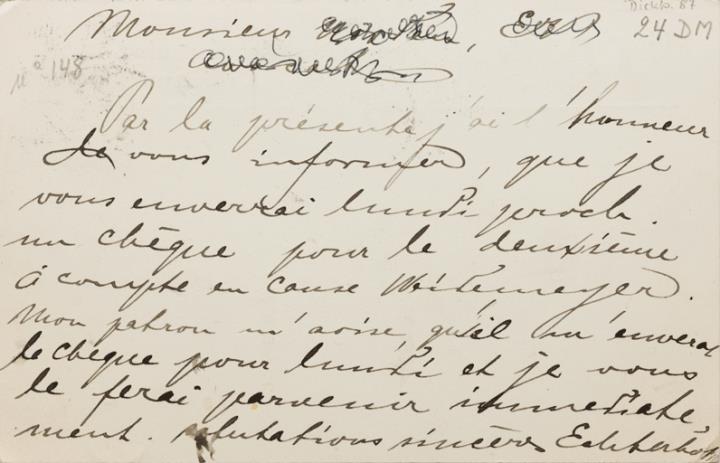 Dickb. 87
24 DM
No 148
Monsieur
Par la présente j'ai l'honneur
de vous informer, que je
vous enverrai lundi proch.
un chèque pour le deuxième
à compte en cause Weidemeyer.
Mon patron m'avise, qu'il m'enverai
le chèque pour lundi et je vous
le ferai parvenir immédiate,
ment. Salutations sincères